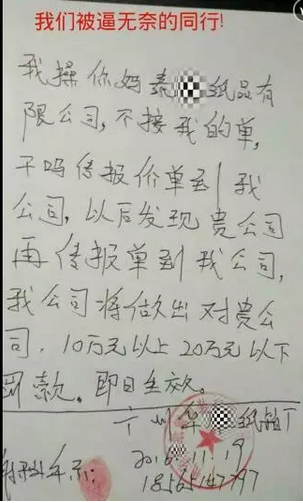 我们被逼无奈的同行!
我操你妈泰 纸品有
限公司,不接我的单,
干吗传报价单到我
公司,以后发现贵公司
再传报单到我公司,
我公司将做出对贵公
司.10万元以上20万元以下
罚款。即日生效。
广州华 纸箱厂
2016.11.19